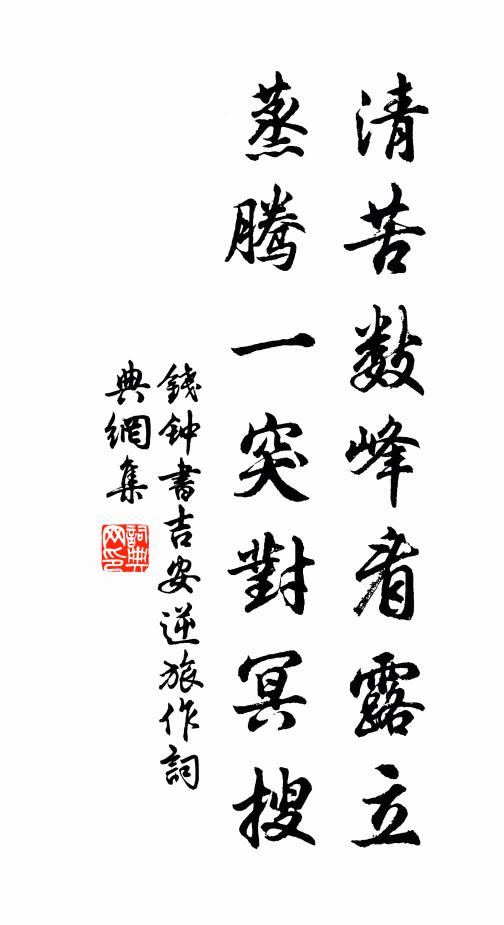 清苦數峰看露立
蒸騰一突對冥搜
錢钟書吉安逆旅作詞
典網集
詞典
网印